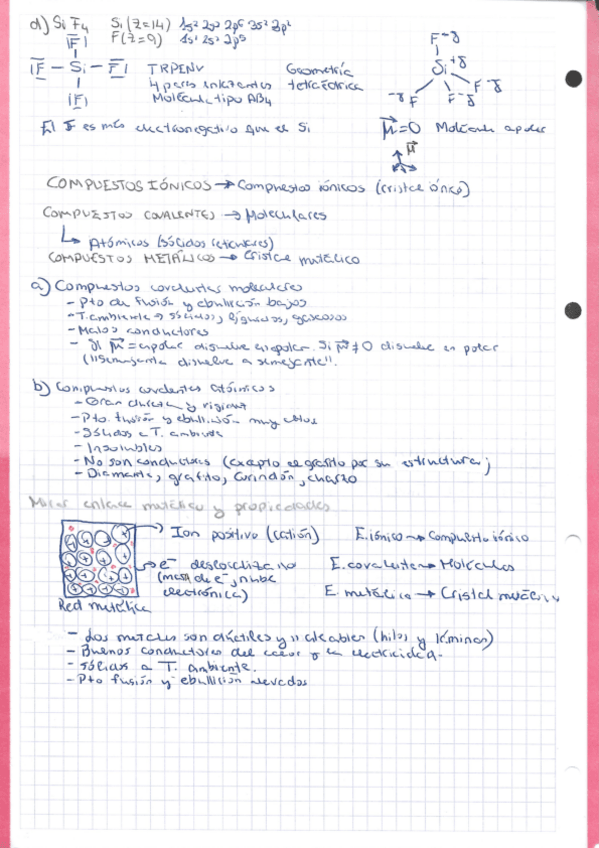 d) SiF₄ Si (Z=14) 1s² 2s² 2p⁶ 3s² 3p²
F (Z=9) 1s² 2s² 2p⁵
|F|
|F — Si — F|
|F|
TRPENV
4 pares enlazantes
Molécula tipo AB₄
Geometría
tetraédrica
F⁻ᵟ
Si⁺ᵟ
⁻ᵟF F⁻ᵟ F⁻ᵟ
El F es más electronegativo que el Si
μ=0 Molécula apolar
μ
COMPUESTOS IÓNICOS → Compuestos iónicos (cristal iónico)
COMPUESTOS COVALENTES → Moleculares
↳ Atómicos (sólidos reticulares)
COMPUESTOS METÁLICOS → Cristal metálico
a) Compuestos covalentes moleculares
- Pto de fusión y ebullición bajos
- T. ambiente → sólidos, líquidos, gaseosos
- Malos conductores
- Si μ = apolar disuelve en apolar. Si μ≠0 disuelve en polar
("Semejante disuelve a semejante".
b) Compuestos covalentes atómicos
- Gran dureza y rigidez
- Pto. fusión y ebullición muy altos
- Sólidos a T. ambiente
- Insolubles
- No son conductores (excepto el grafito por su estructura)
- Diamante, grafito, Corindón, cuarzo
Mirar enlace metálico y propiedades
Ion positivo (catión)
e⁻ deslocalizado
(mar de e⁻, nube
electrónica)
Red metálica
E. iónico → Compuesto iónico
E. covalente → Moléculas
E. metálico → Cristal metálico
- Los metales son dúctiles y maleables (hilos y láminas)
- Buenos conductores del calor y la electricidad.
- Sólidos a T. ambiente.
- Pto fusión y ebullición elevados